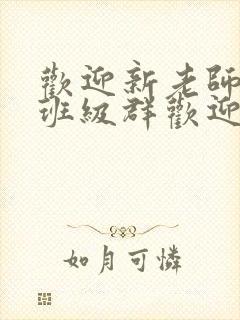 歡迎新老師
班級群歡迎
如月可憐